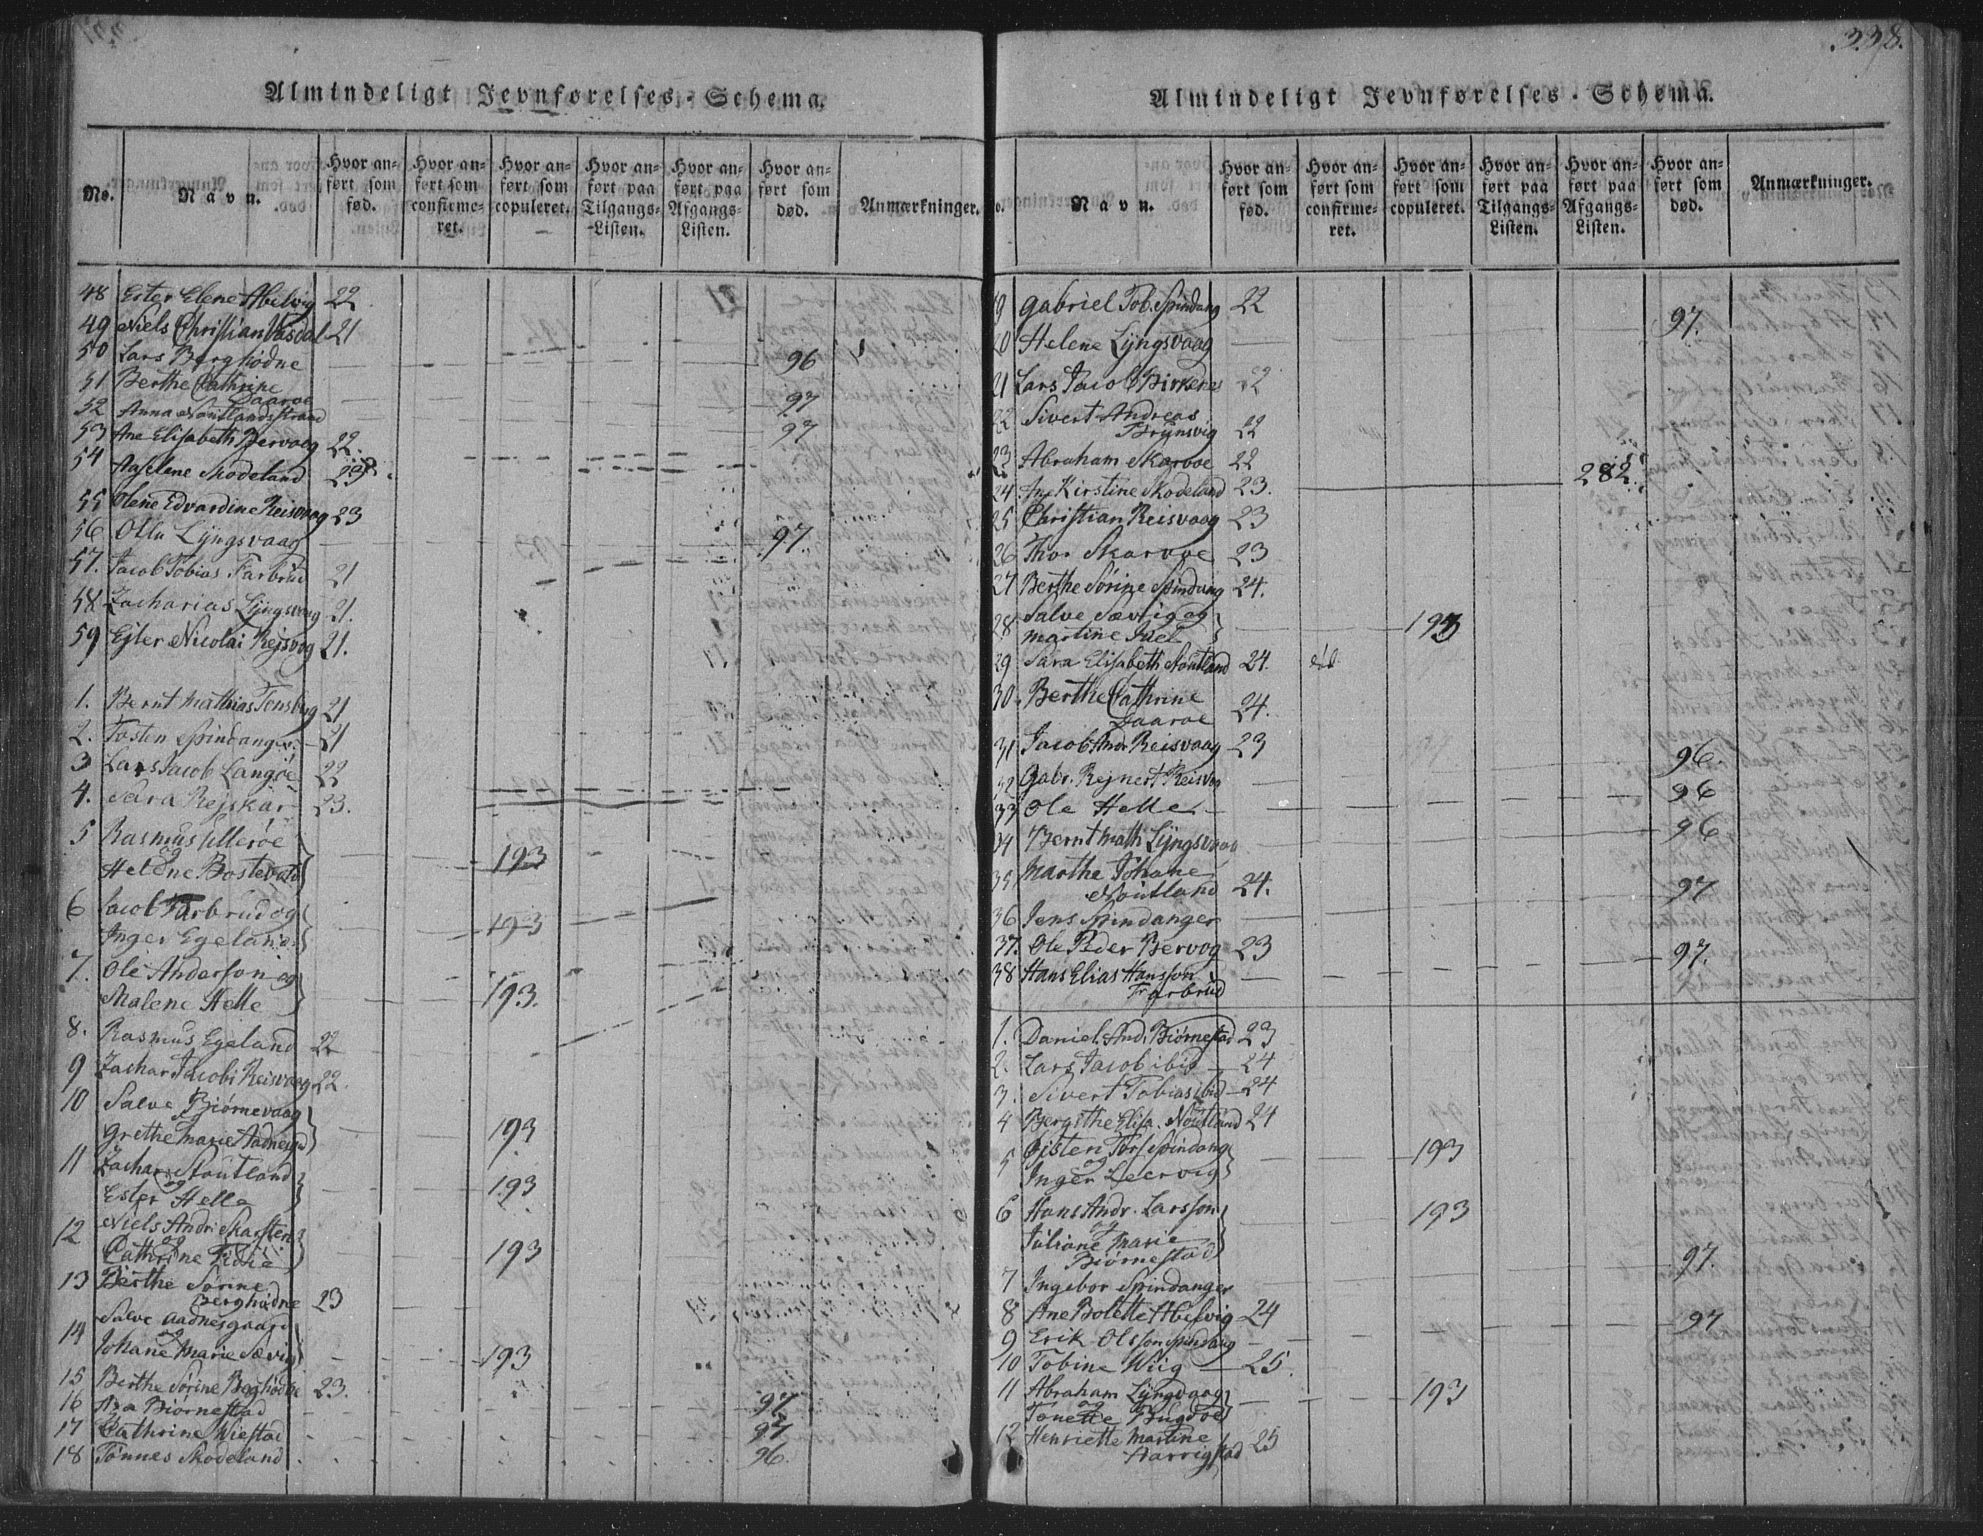 338.
Almindeligt Jevnførelses-Schema.
No.
Navn.
Hvor anført som fød.
Hvor anført som confirmeret.
Hvor anført som copuleret.
Hvor anført paa Tilgangs-Listen.
Hvor anført paa Afgangs-Listen.
Hvor anført som død.
Anmærkninger.
48 Ester Elene Abelvig 22
49 Niels Christian 21
50 Lars Berghødne 96
51 Berthe Cathrine
Daaroe 97
52 Anna Noutlandsstrand 97
53 Ane Elisabeth Bervaag 22.
54 Aaselene Skodeland 23
55 Olene Edvardine Reisvaag 23
56 Olla Lÿngsvaag 97
57. Jacob Tobias Farbrud 21
58 Zacharias Lÿngsvaag 21.
59 Ejler Nicolai Rejsvog 21.
1. Bernt Mathias 21
2. Tosten Spindanger 21
3 Lars Jacob Langøe 22
4. Sara Rejskar 23.
5 Rasmus Ullerøe
og
Helene Bostevold 193
6 Jacob Farbrud og
Inger Egeland 193
7. Ole Anderson og
Malene Helle 193.
8. Rasmus Egeland 22
9 Zachar Jacobs Reisvaag 22.
10 Salve Biørnevaag
Grethe Marie 193
11 Zachar Noutland
og
Ester Helle 193
12 Niels Andr. Skarsten
og
Cathrine 193
13 Berthe Sørine
Berghødne 23
14 Salve Aadnesgaard
og
Johane Marie Sævig 193
15 Berthe Sørine Berghødne 23.
16 Biørnestad 97
17 Cathrine Wiestad 97
18 Tønnes Skodeland 96.
Almindeligt Jevnførelses-Schema.
No.
Navn.
Hvor anført som fød.
Hvor anført som confirmeret.
Hvor anført som copuleret.
Hvor anført paa Tilgangs-Listen.
Hvor anført paa Afgangs-Listen.
Hvor anført som død.
Anmærkninger.
19 Gabriel Tob. Spindang 22
20 Helene Lÿngsvaag 97.
21 Lars Jacob Birkenes 22
22 Sivert Andreas
Brÿnsvig 22
23 Abraham Skarvoe 22
24 Ane Kirstine Skodeland 23. 282.
25 Christian Reisvaag 23
26 Thor Skarvoe 23
27 Berthe Sørine Spindang 24.
28 Salve Sævig og
Martine 193
29 Sara Elisabeth Noutland 24.
30 Berthe Cathrine
Daaroe 24.
31 Jacob Andr. Reisvaag 23
32 Gabr. Rejnert Reisvog 96.
33 Ole Helle 96
34 Bernt Math Lÿngsvaag 96
35 Marthe Johane
Noutland 24.
36 Jens Spindanger 97
37. Ole Peder Bervog 23
38 Hans Elias Hansson
Farbrud 97.
1. Daniel And. Biørnestad 23
2. Lars Jacob ibid 24
3. Sivert Tobias ibid 24
4 Bergithe Elisa. Noutland 24
5 Tors Spindang
og
Inger Leervig 193
6 Hans Andr. Larsson
og
Juliane Marie
Biørnestad 193
7 Ingebor Spindanger 97.
8 Ane Bolette Abelvig 24
9 Erik Olsson Spindang 97
10 Tobine Wiig 25.
11 Abraham Lÿngsvaag
og
Tonette 193
12 Henriette Martine
Aarrigstad 25